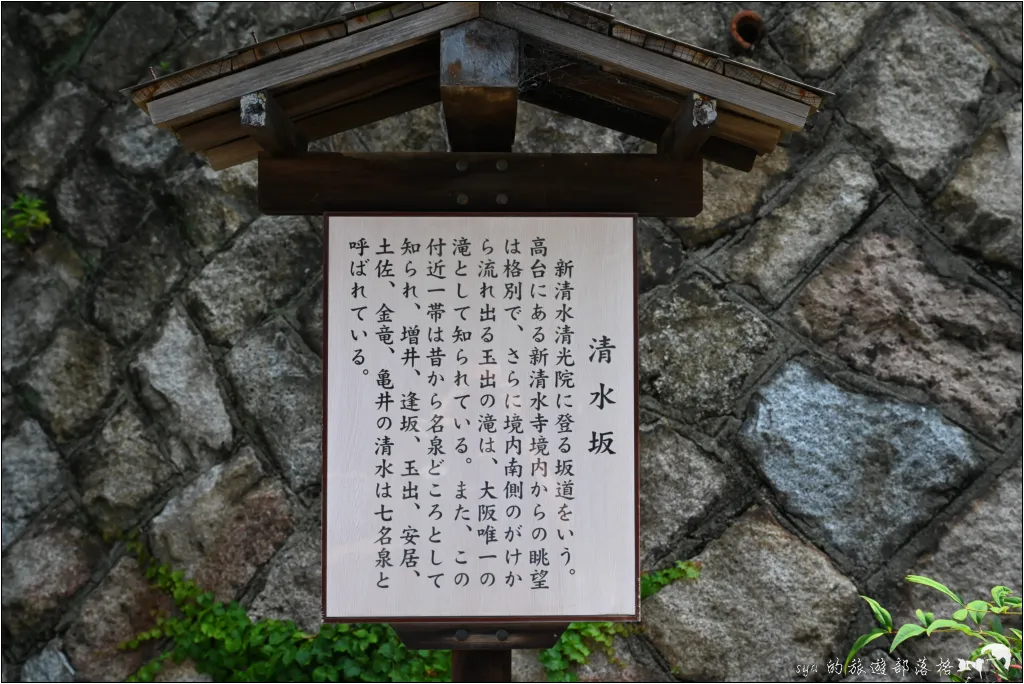 清水坂
新清水清光院に登る坂道をいう。
高台にある新清水寺境内からの眺望
は格別で、さらに境内南側のがけか
ら流れ出る玉出の滝は、大阪唯一の
滝として知られている。また、この
付近一帯は昔から名泉どころとして
知られ、増井、逢坂、玉出、安居、
土佐、金竜、亀井の清水は七名泉と
呼ばれている。
syu的旅遊部落格